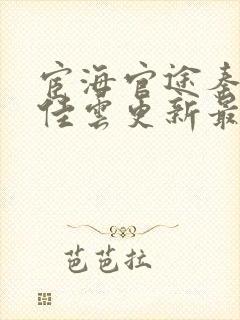 宦海官途秦
佳雲更新最
芭芭拉